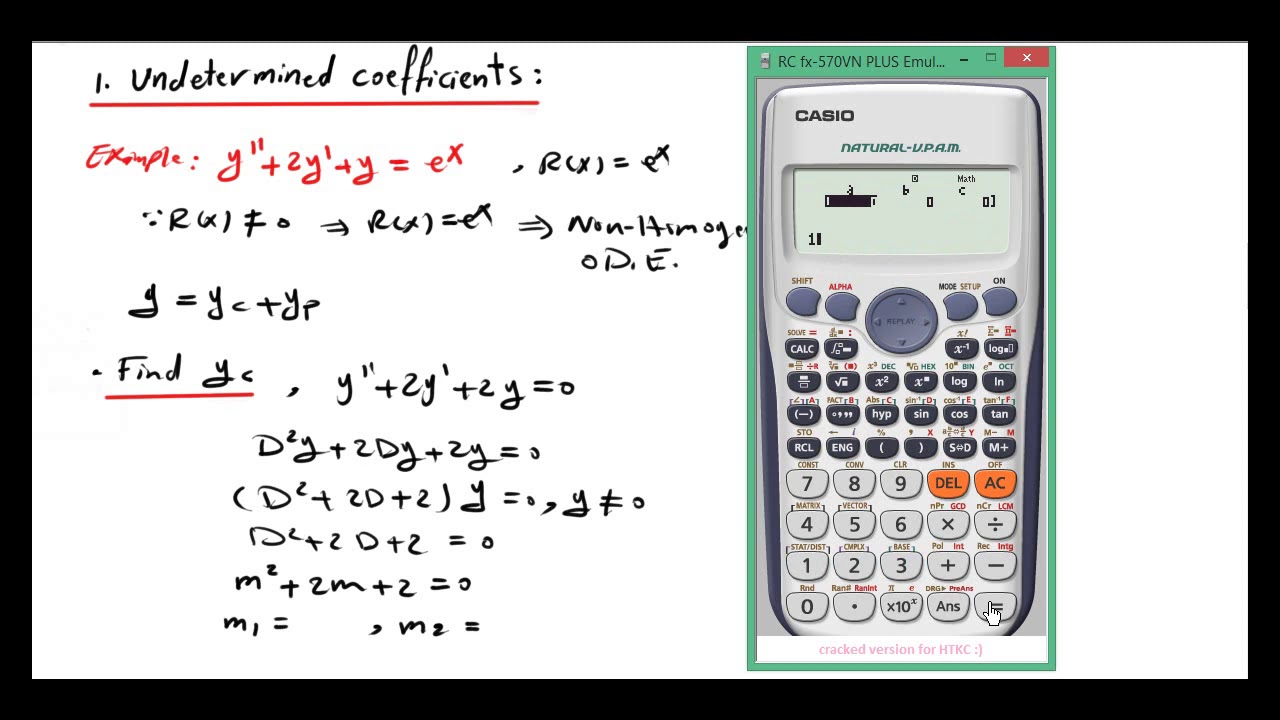 1. Undetermined coefficients:
Example: y'' + 2y' + y = e^x , R(x) = e^x
∵ R(x) ≠ 0 ⇒ R(x) = e^x ⇒ Non-Himoge
O D.E.
y = yc + yp
• Find yc , y'' + 2y' + 2y = 0
D²y + 2Dy + 2y = 0
(D² + 2D + 2) y = 0, y ≠ 0
D² + 2D + 2 = 0
m² + 2m + 2 = 0
m₁ = , m₂ =
RC fx-570VN PLUS Emul...
CASIO
NATURAL-V.P.A.M.
D Math
a b c
0 0]
1
SHIFT ALPHA MODE SETUP ON
REPLAY
SOLVE = : x! Σ= Π=
CALC ∫ x⁻¹ log
÷R x³ DEC HEX 10 BIN e OCT
√ x² x^■ log ln
∠ A FACT B Abs C sin⁻¹ D cos⁻¹ E tan⁻¹ F
(−) °,,, hyp sin cos tan
STO ← i % , X Y M− M
RCL ENG ( ) S⇔D M+
CONST CONV CLR INS OFF
7 8 9 DEL AC
MATRIX VECTOR nPr GCD nCr LCM
4 5 6 × ÷
STAT/DIST CMPLX BASE Pol Int Rec Intg
1 2 3 + −
Rnd Ran# RanInt π e DRG▸ PreAns
0 . ×10ˣ Ans =
cracked version for HTKC :)